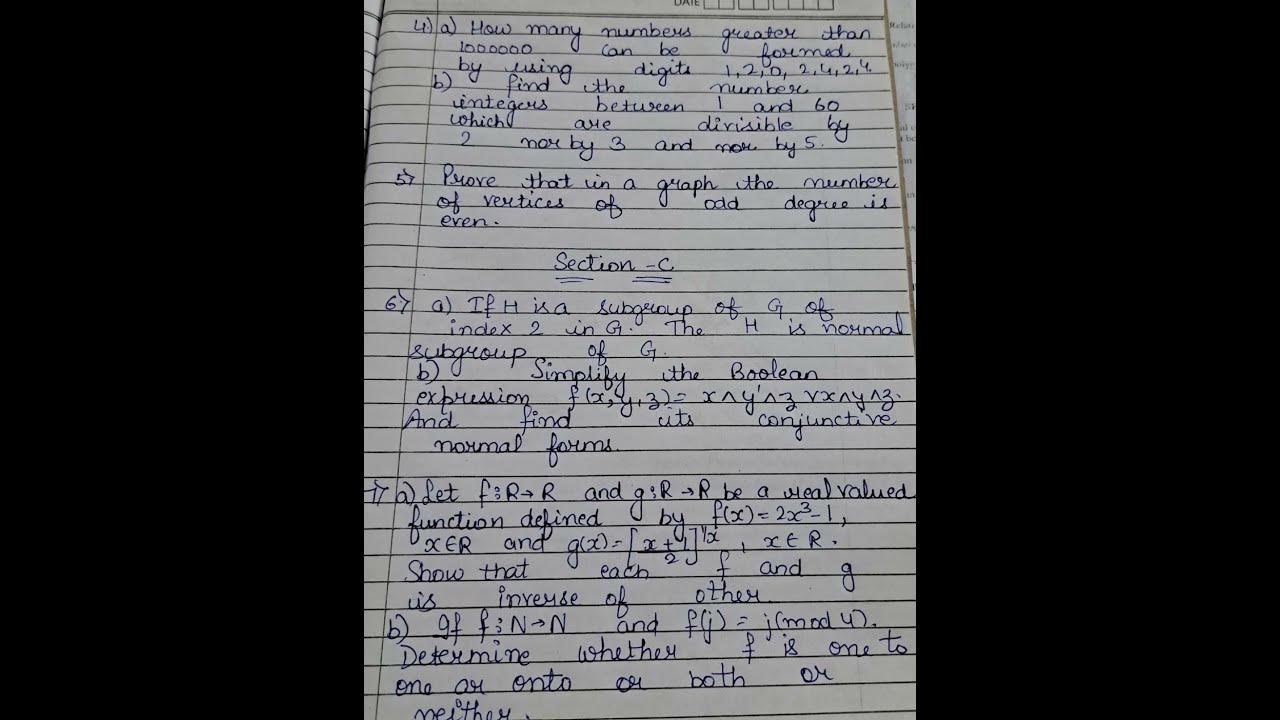 DATE
4) a) How many numbers greater than
1000000 can be formed
by using digits 1,2,0, 2,4,2,4.
b) find the number
integers between 1 and 60
which are divisible by
2 nor by 3 and nor by 5.
5) Prove that in a graph the number
of vertices of odd degree is
even.
Section - C
6) a) If H is a subgroup of G of
index 2 in G. The H is normal
subgroup of G.
b) Simplify the Boolean
expression f(x,y,z)= x∧y'∧z ∨x∧y∧z.
And find its conjunctive
normal forms.
7) a) Let f:R→R and g:R→R be a real valued
function defined by f(x)=2x³-1,
x∈R and g(x)=[x+1/2]^1/x, x∈R.
Show that each f and g
is inverse of other.
b) If f:N→N and f(j)=j(mod 4).
Determine whether f is one to
one or onto or both or
neither.